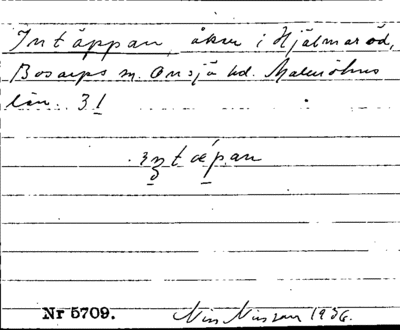 Intäppan, åker i Hjälmaröd,
Bosarps sn. Onsjö hd. Malmöhus
län. 31
ʒntæpan
Nr 5709. Nils Nilsson 1936.